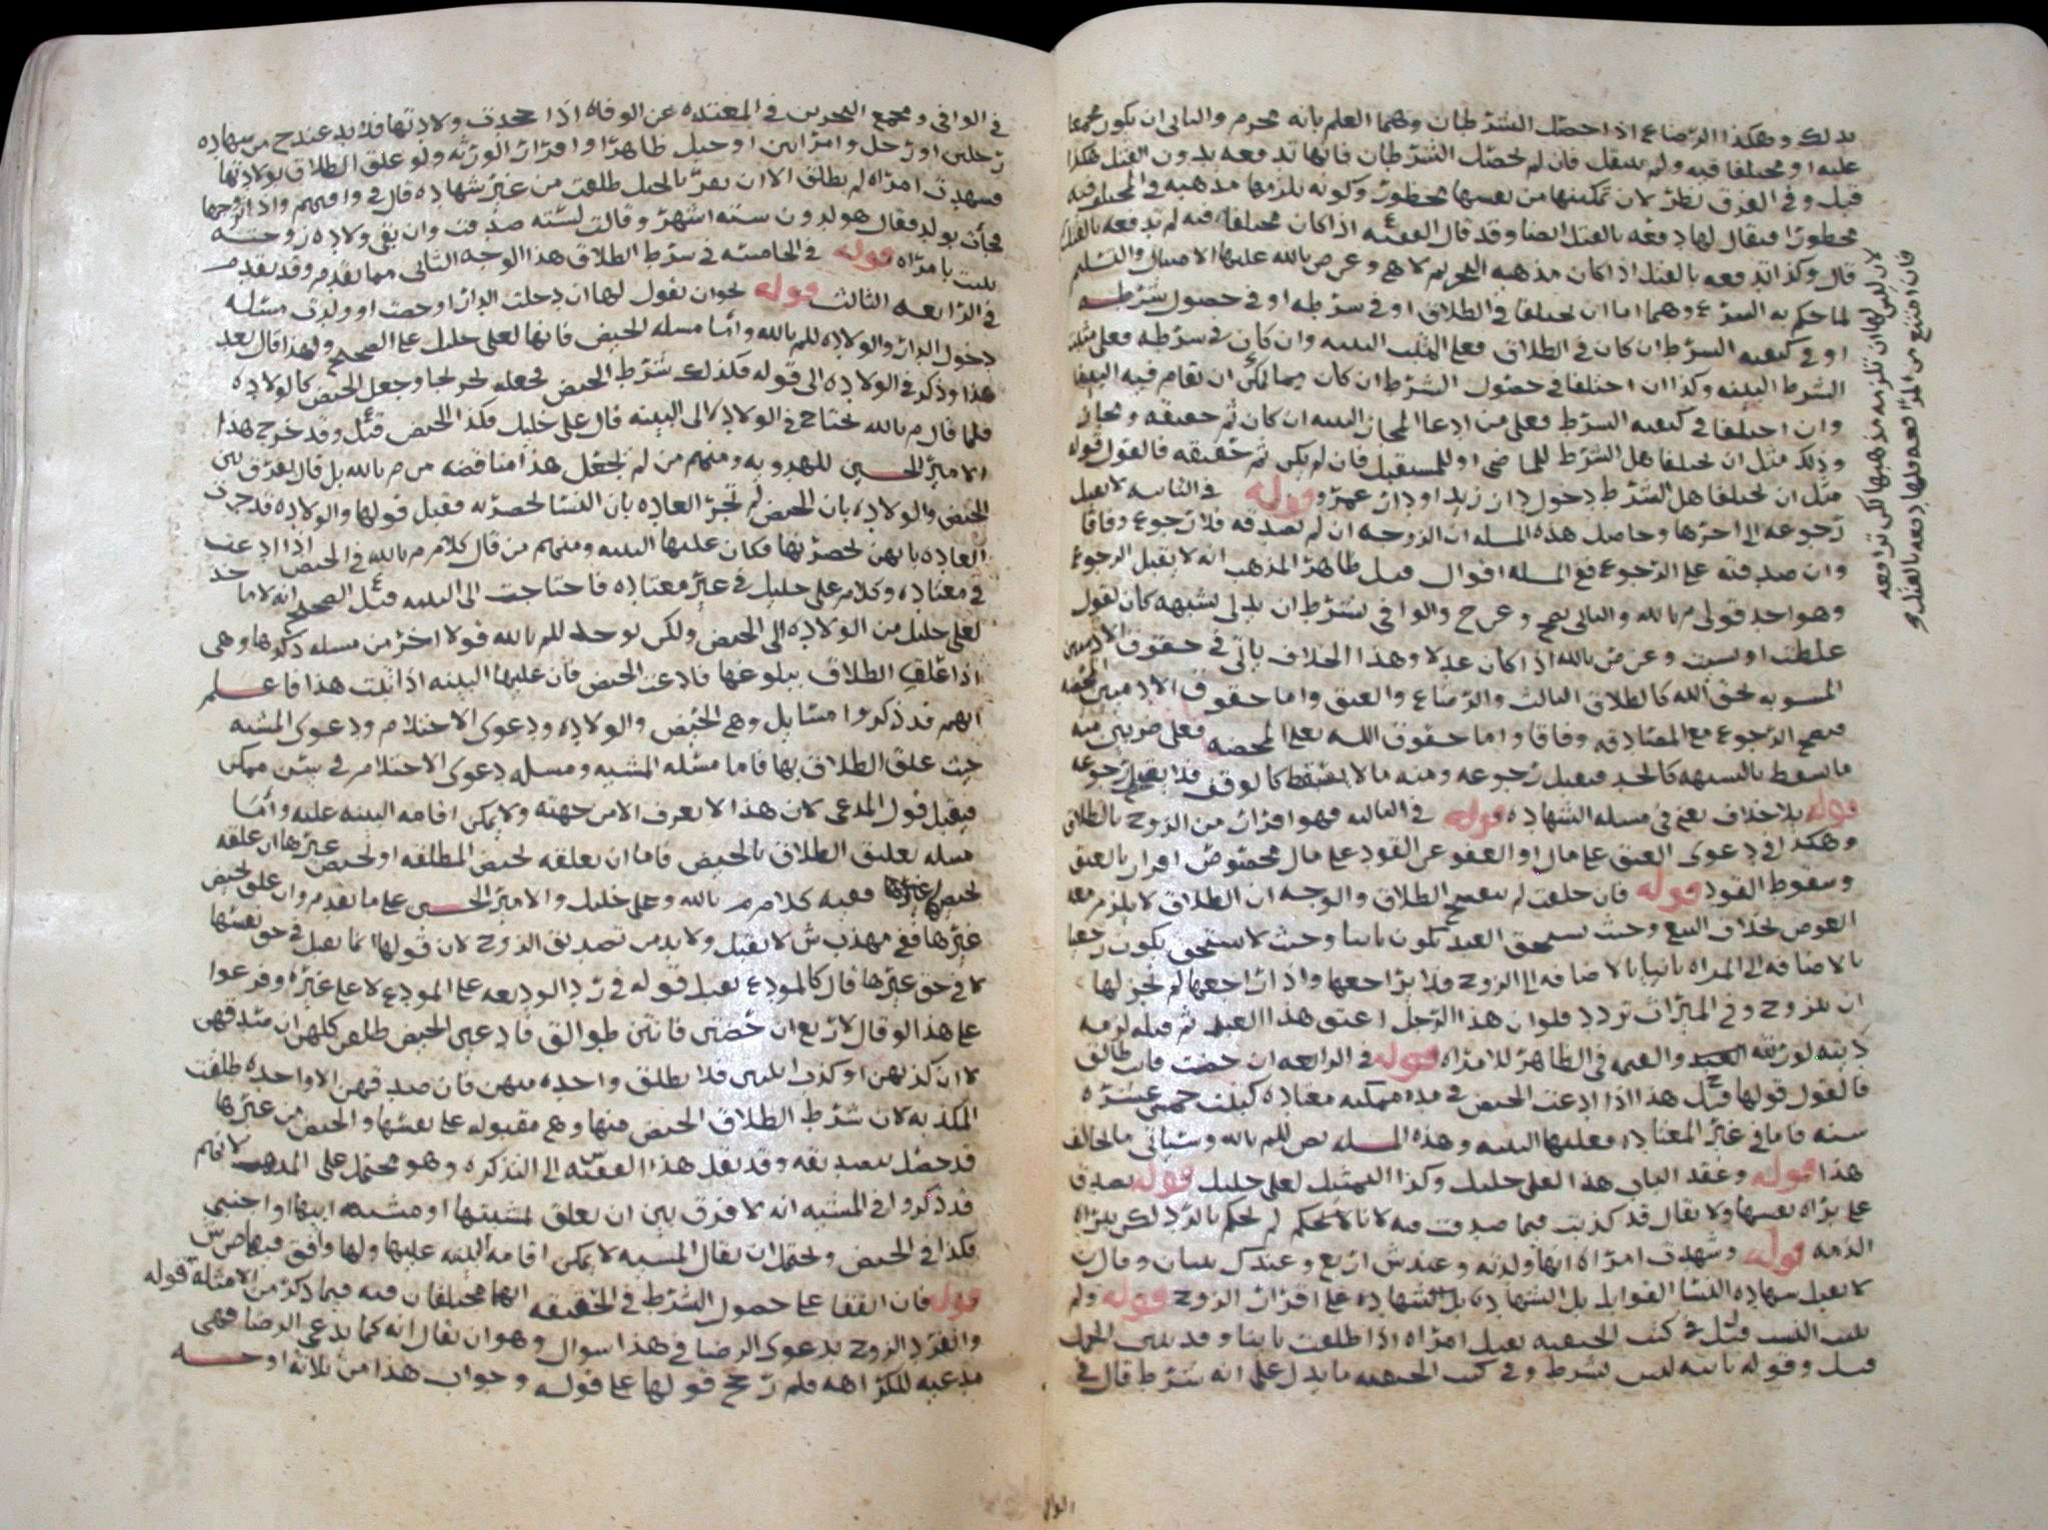 بذلك وهكذا الرضاع اذا حصل الشرطان وهما العلم بانه محرم والثاني ان يكون مجمعا
عليه او مختلفا فيه ولم ينتقل فان لم يحصل الشرطان فانها تدفعه بدون القتل هكذا
قيل وفي الفرق نظر لان تمكينها من نفسها محظور وكونه يلزمها مذهبه في المختلف فيه
محظورا فيقال لها دفعه بالقتل ايضا وقد قال الفقيه ع اذا كان مختلفا فيه لم تدفعه بالقتل
قال وكذا تدفعه بالقتل اذا كان مذهبه التحريم لا هي وعن ص بالله عليها الامتثال والتسليم
لما حكم به الشرع وهما اما ان يختلفا في الطلاق او في شرطه او في حصول شرطه
او في كيفيه الشرط ان كان في الطلاق فعلى المثبت البينه وان كان في شرطه فعلى مثبت
الشرط البينه وكذا ان اختلفا في حصول الشرط ان كان مما يمكن ان تقام فيه البينه
وان اختلفا في كيفيه الشرط فعلى من ادعا المجاز البينه ان كان ثم حقيقه ومجاز
وذلك مثل ان يختلفا هل الشرط للماضي او للمستقبل فان لم يكن ثم حقيقه فالقول قوله
مثل ان يختلفا هل الشرط دخول دار زيد او دار عمرو قوله في الثانيه لا يقبل
رجوعه الى اخرها وحاصل هذه المسله ان الزوجه ان لم تصدقه فلا رجوع وفاقا
وان صدقته على الرجوع ففي المسله اقوال قيل ظاهر المذهب انه لا يقبل الرجوع
وهو احد قولي م بالله والثاني يصح وعن ح والوافي بشرط ان يدلي بشبهه كان يقول
غلطت او نسيت وعن ص بالله اذا كان عدلا وهذا الخلاف ياتي في حقوق الادميين
المشوبه بحق الله كالطلاق الثالث والرضاع والعتق واما حقوق الادميين المحضه
فيصح الرجوع مع المصادقه وفاقا واما حقوق الله تعلى المحضه فعلى ضربين منه
ما يسقط بالشبهه كالحد فيقبل رجوعه ومنه ما لا يسقط كالوقف فلا يصح رجوعه
قوله بلا خلاف يعني في مسله الشهاده قوله في الثالثه فهو اقرار من الزوج بالطلاق
وهكذا في دعوى العتق على مال او العفو عن القود على مال مخصوص اقرار بالعتق
وسقوط القود قوله فان حلفت لم يصح الطلاق والوجه ان الطلاق لا يلزم معه
العوض بخلاف البيع وحيث يستحق العبد يكون باينا وحيث لا يستحق يكون رجعيا
بالاضافه الى المراه باينا بالاضافه الى الزوج فلا يراجعها واذا راجعها لم يجز لها
ان تتزوج وفي الميراث تردد فلو ان هذا الرجل اعتق هذا العبد ثم قتله لزمه
ديته لورثته والقيمه في الظاهر للامراه قوله في الرابعه ان حضت فانت طالق
فالقول قولها قيل ع هذا اذا ادعت الحيض في مده ممكنه معتاده كبنت خمس عشره
سنه فاما في غير المعتاده فعليها البينه وهذه المسله نص للم بالله وسياتي ما يخالف
هذا قوله وعقد الباب هذا لعلي خليل وكذا التمثيل لعلي خليل قوله تصدق
على براه نفسها ولا يقال قد كذبت فيما صدقت فيه لانا لا نحكم لم نحكم بالرد لكن ببراه
الذمه قوله وشهدت امراه انها ولدته وعند ش اربع وعند ك ثنتان وقال ن
لا تقبل شهاده النسا القوابل بل الشهاده على اقرار الزوج قوله ولم
يثبت النسب قيل ل في كتب الحنفيه تقبل امراه اذا طلقت باينا وقد تبين الحمل
قيل وقوله باينه ليس بشرط وفي كتب الحنفيه ما يدل على انه شرط قال في
لان ليس لها ان تلزمه مذهبها لكن ترافعه
فان امتنع من المرافعه فلها دفعه بالقتل
الوا
في الوافي ومجمع البحرين في المعتده عن الوفاه اذا جحدت ولادتها فلا بد عند ح من شهاده
رجلين او رجل وامراتين او حبل ظاهرا واقرار الورثه ولو علق الطلاق بولادتها
فشهدت امراه لم تطلق الا ان يقر بالحبل طلقت من غير شهاده قال في وافيهم واذا تزوجها
فجات بولد فقال هو لدون سته اشهر وقالت لسته صدقت وان نفى ولاده زوجته
ثبتت بامراه قوله في الخامسه في شرط الطلاق هذا الوجه الثاني مما تقدم وقد تقدم
في الرابعه الثالث قوله نحو ان يقول لها ان دخلت الدار او حضت او ولدت مسئله
دخول الدار والولاده للم بالله واما مسله الحيض فانها لعلي خليل على الصحيح ولهذا قال بعد
هذا وذكر في الولاده الى قوله فكذلك شرط الحيض فجعله تخريجا وجعل الحيض كالولاده
فلما قال م بالله تحتاج في الولاده الى البينه قال علي خليل فكذا الحيض قيل ع وقد خرج هذا
الامير الحسين للهدويه ومنهم من لم يجعل هذا مناقضه من م بالله بل قال يفرق بين
الحيض والولاده بان الحيض لم تجر العاده بان النسا تحضر به فقبل قولها والولاده قد جرت
العاده بانهن يحضرنها فكان عليها البينه ومنهم من قال كلام م بالله في الحيض اذا ادعت
في معتاده وكلام علي خليل في غير معتاده فاحتاجت الى البينه قيل ع الصحيح انه لا ما خذ
لعلي خليل من الولاده الى الحيض ولكن يوخذ للم بالله قولا اخر من مسله ذكرها وهي
اذا علق الطلاق ببلوغها فادعت الحيض فان عليها البينه اذا ثبت هذا فاعلم
انهم قد ذكروا مسايل وهي الحيض والولاده ودعوى الاحتلام ودعوى المشيه
حيث علق الطلاق بها فاما مسئله المشيه ومسله دعوى الاحتلام في سن ممكن
فيقبل قول المدعي لان هذا لا يعرف الا من جهته ولا يمكن اقامه البينه عليه واما
مسله تعليق الطلاق بالحيض فاما ان يعلقه بحيض المطلقه او بحيض غيرها ان علقه
بحيضها ففيه كلام م بالله وعلي خليل والامير الحسين على ما تقدم وان علق بحيض
غيرها ففي مهذب ش لا يقبل ولا بد من تصديق الزوج لان قولها انما يقبل في حق نفسها
لا في حق غيرها قال كالمودع يقبل قوله في رد الوديعه على المودع لا على غيره وفرعوا
على هذا لو قال لاربع ان حضتن فانتن طوالق فادعين الحيض طلقن كلهن ان صدقهن
لا ان كذبهن او كذب اثنتين فلا تطلق واحده منهن فان صدقهن الا واحده طلقت
المكذبه لان شرط الطلاق الحيض منها وهي مقبوله على نفسها والحيض من غيرها
قد حصل بتصديقه وقد نقل هذا الفقيه س الى التذكره وهو محتمل على المذهب لانهم
قد ذكروا في المشيه انه لا فرق بين ان يعلق بمشيتها او مشيه ابيها او اجنبي
فكذا في الحيض ويحتمل ان يقال المشيه لا يمكن اقامه البينه عليها ولها وافق فيها ص ش
قوله فان اتفقا على حصول الشرط في الحقيقه انهما مختلفان فيه فيما ذكر من الامثله قوله
وانفرد الزوج بدعوى الرضا في هذا سوال وهو ان يقال انه كما يدعي الرضا فهي
مدعيه للكراهه فلم رجح قولها على قوله وجواب هذا من ثلاثه اوجه